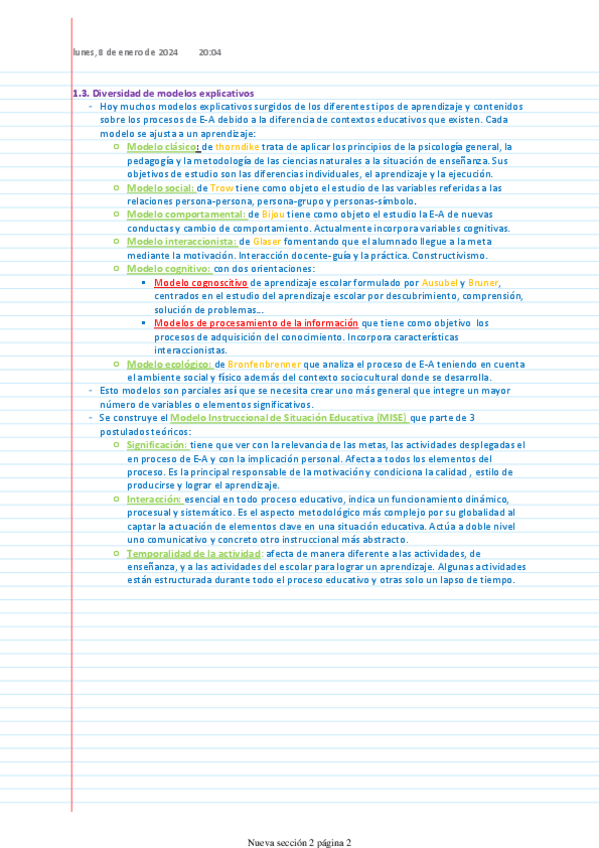 lunes, 8 de enero de 2024 20:04
1.3. Diversidad de modelos explicativos
- Hoy muchos modelos explicativos surgidos de los diferentes tipos de aprendizaje y contenidos
sobre los procesos de E-A debido a la diferencia de contextos educativos que existen. Cada
modelo se ajusta a un aprendizaje:
o Modelo clásico: de thorndike trata de aplicar los principios de la psicología general, la
pedagogía y la metodología de las ciencias naturales a la situación de enseñanza. Sus
objetivos de estudio son las diferencias individuales, el aprendizaje y la ejecución.
o Modelo social: de Trow tiene como objeto el estudio de las variables referidas a las
relaciones persona-persona, persona-grupo y personas-símbolo.
o Modelo comportamental: de Bijou tiene como objeto el estudio la E-A de nuevas
conductas y cambio de comportamiento. Actualmente incorpora variables cognitivas.
o Modelo interaccionista: de Glaser fomentando que el alumnado llegue a la meta
mediante la motivación. Interacción docente-guía y la práctica. Constructivismo.
o Modelo cognitivo: con dos orientaciones:
▪ Modelo cognoscitivo de aprendizaje escolar formulado por Ausubel y Bruner,
centrados en el estudio del aprendizaje escolar por descubrimiento, comprensión,
solución de problemas...
▪ Modelos de procesamiento de la información que tiene como objetivo los
procesos de adquisición del conocimiento. Incorpora características
interaccionistas.
o Modelo ecológico: de Bronfenbrenner que analiza el proceso de E-A teniendo en cuenta
el ambiente social y físico además del contexto sociocultural donde se desarrolla.
- Esto modelos son parciales así que se necesita crear uno más general que integre un mayor
número de variables o elementos significativos.
- Se construye el Modelo Instruccional de Situación Educativa (MISE) que parte de 3
postulados teóricos:
o Significación: tiene que ver con la relevancia de las metas, las actividades desplegadas el
en proceso de E-A y con la implicación personal. Afecta a todos los elementos del
proceso. Es la principal responsable de la motivación y condiciona la calidad , estilo de
producirse y lograr el aprendizaje.
o Interacción: esencial en todo proceso educativo, indica un funcionamiento dinámico,
procesual y sistemático. Es el aspecto metodológico más complejo por su globalidad al
captar la actuación de elementos clave en una situación educativa. Actúa a doble nivel
uno comunicativo y concreto otro instruccional más abstracto.
o Temporalidad de la actividad: afecta de manera diferente a las actividades, de
enseñanza, y a las actividades del escolar para lograr un aprendizaje. Algunas actividades
están estructurada durante todo el proceso educativo y otras solo un lapso de tiempo.
Nueva sección 2 página 2